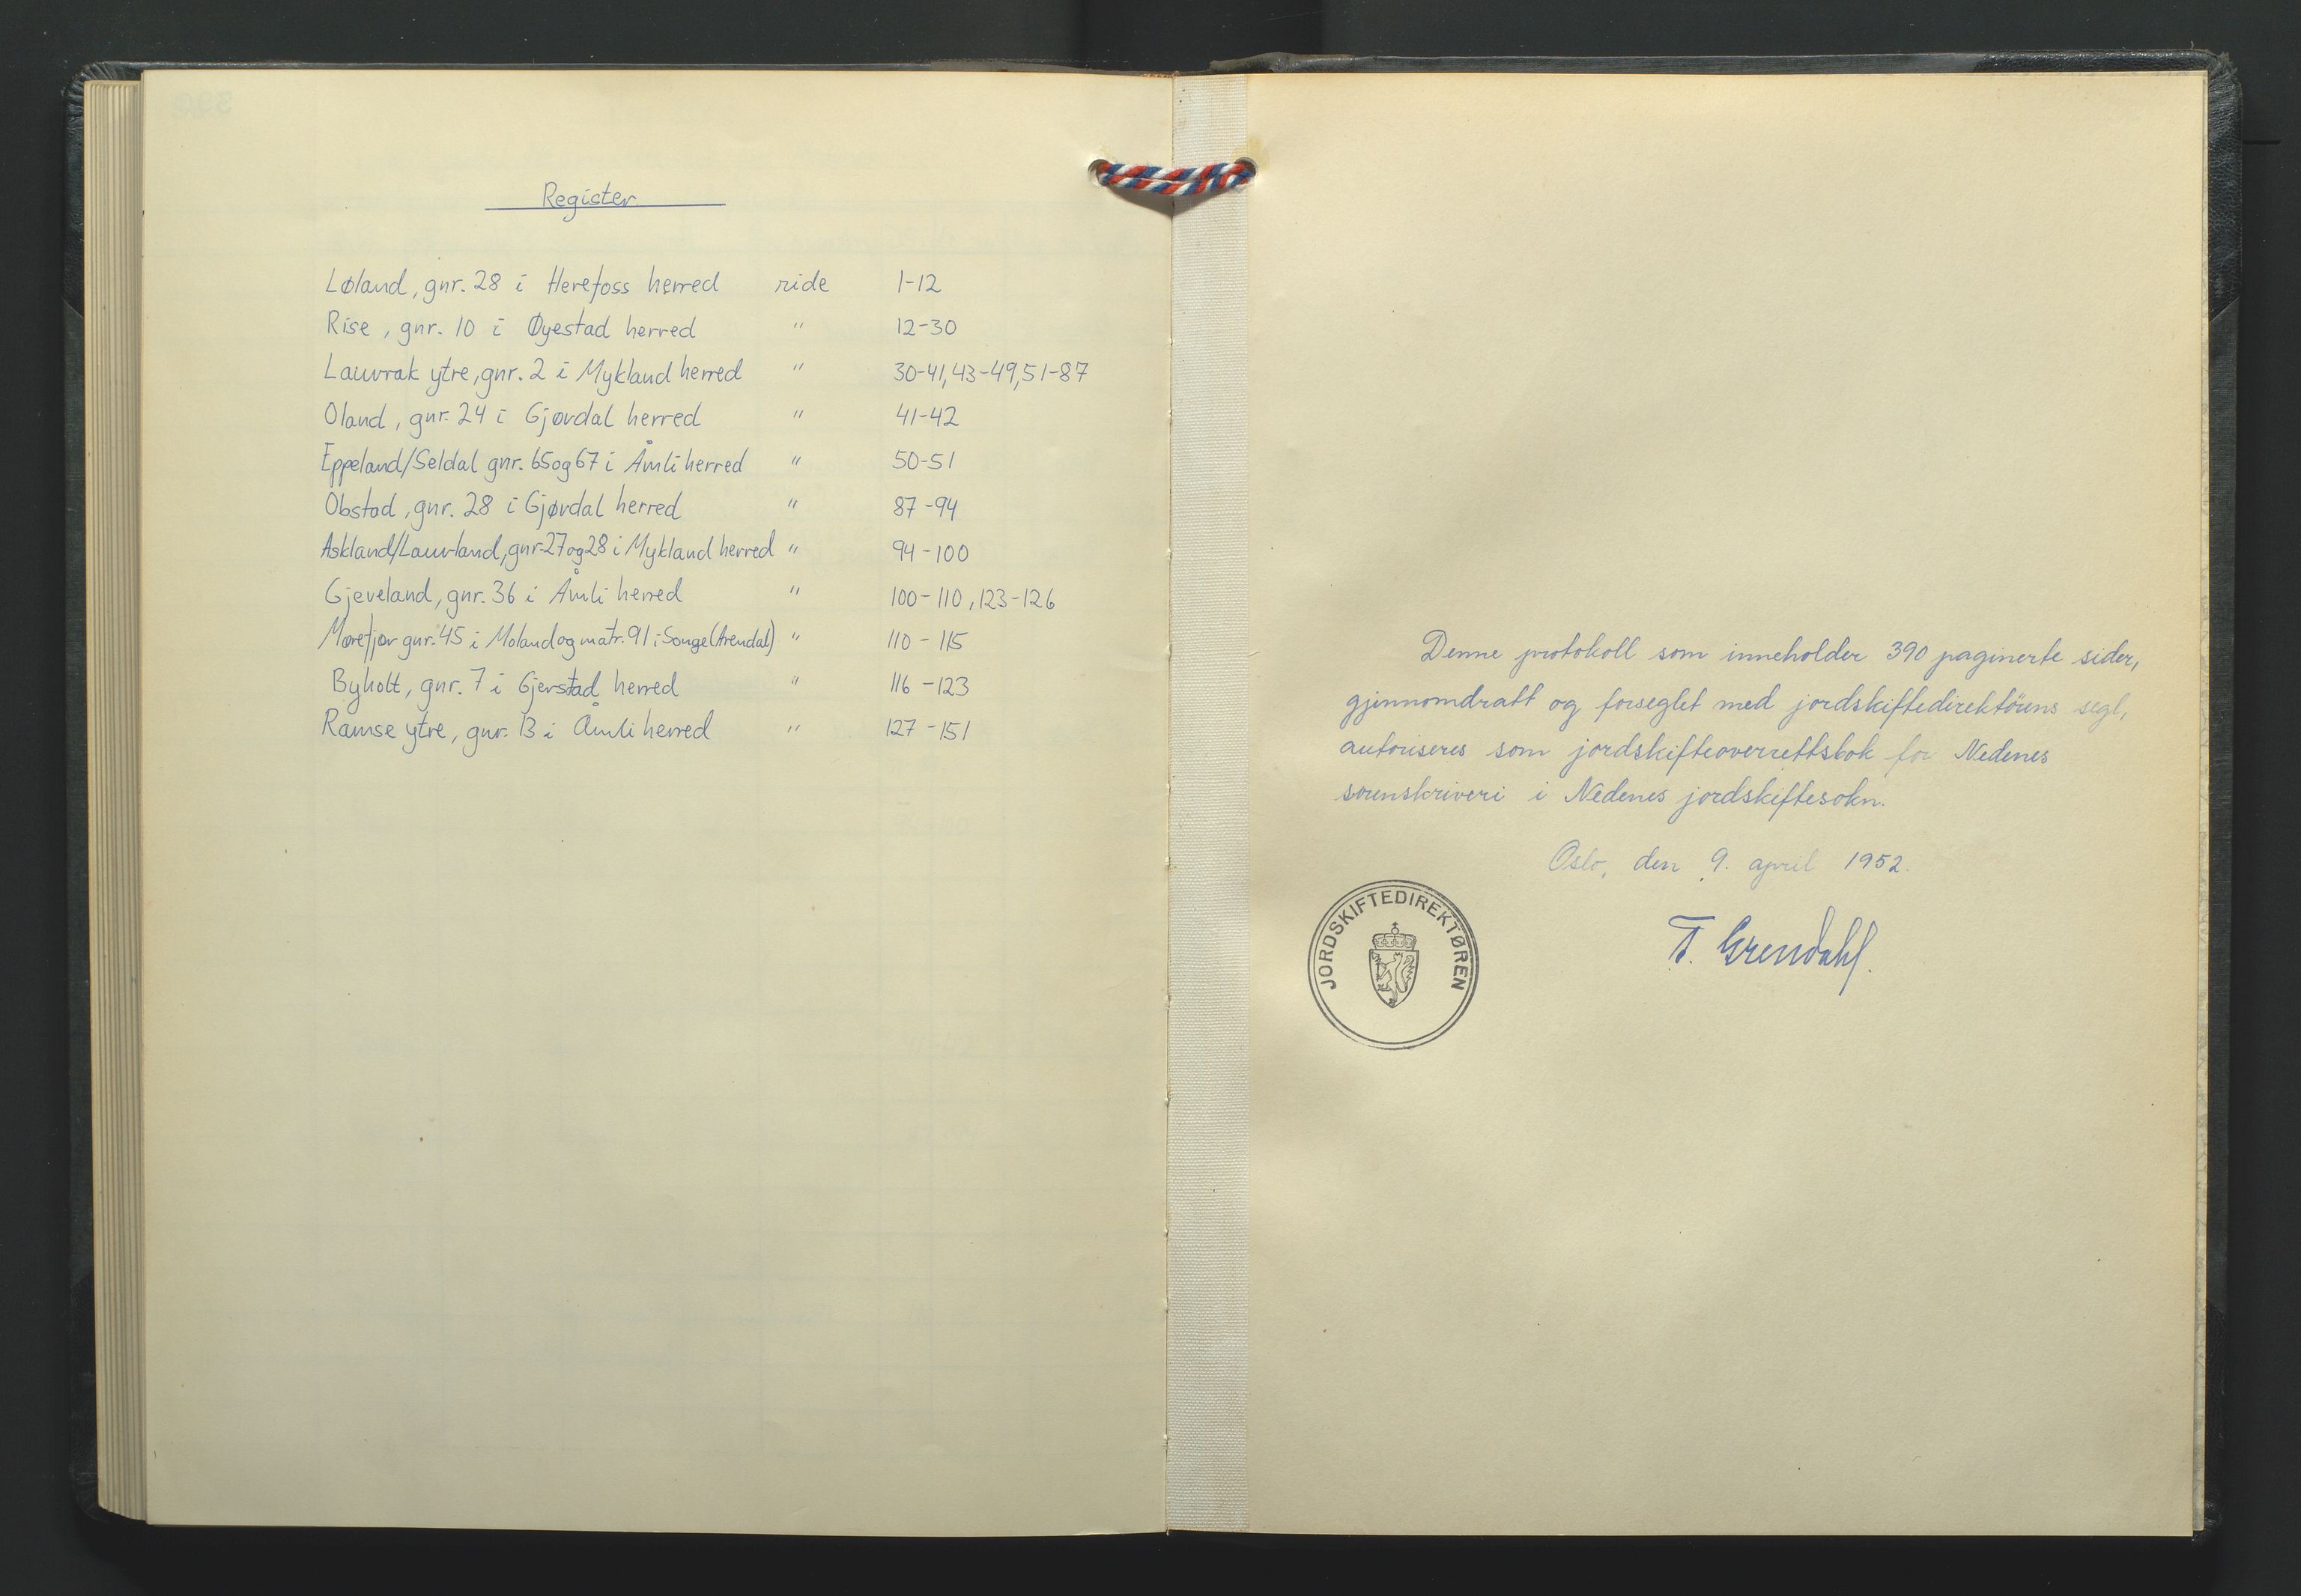 Register
Løland, gnr. 28 i Herefoss herred side 1-12
Rise, gnr. 10 i Øyestad herred " 12-30
Lauvrak ytre, gnr. 2 i Mykland herred " 30-41, 43-49, 51-87
Oland, gnr. 24 i Gjøvdal herred " 41-42
Eppeland/Seldal gnr. 65 og 67 i Åmli herred " 50-51
Obstad, gnr. 28 i Gjøvdal herred " 87-94
Askland/Lauvland, gnr. 27 og 28 i Mykland herred " 94-100
Gjeveland, gnr. 36 i Åmli herred " 100-110, 123-126
Morefjær gnr. 45 i Moland og matr. 91 i Songe (Arendal) " 110-115
Byholt, gnr. 7 i Gjerstad herred " 116-123
Ramse ytre, gnr. 13 i Åmli herred " 127-151
Denne protokoll som inneholder 390 paginerte sider,
gjennomdratt og forseglet med jordskiftedirektörens segl,
autoriseres som jordskifteoverrettsbok for Nedenes
sorenskriveri i Nedenes jordskiftesokn.
Oslo, den 9. april 1952.
T. Grendahl.
JORDSKIFTEDIREKTØREN